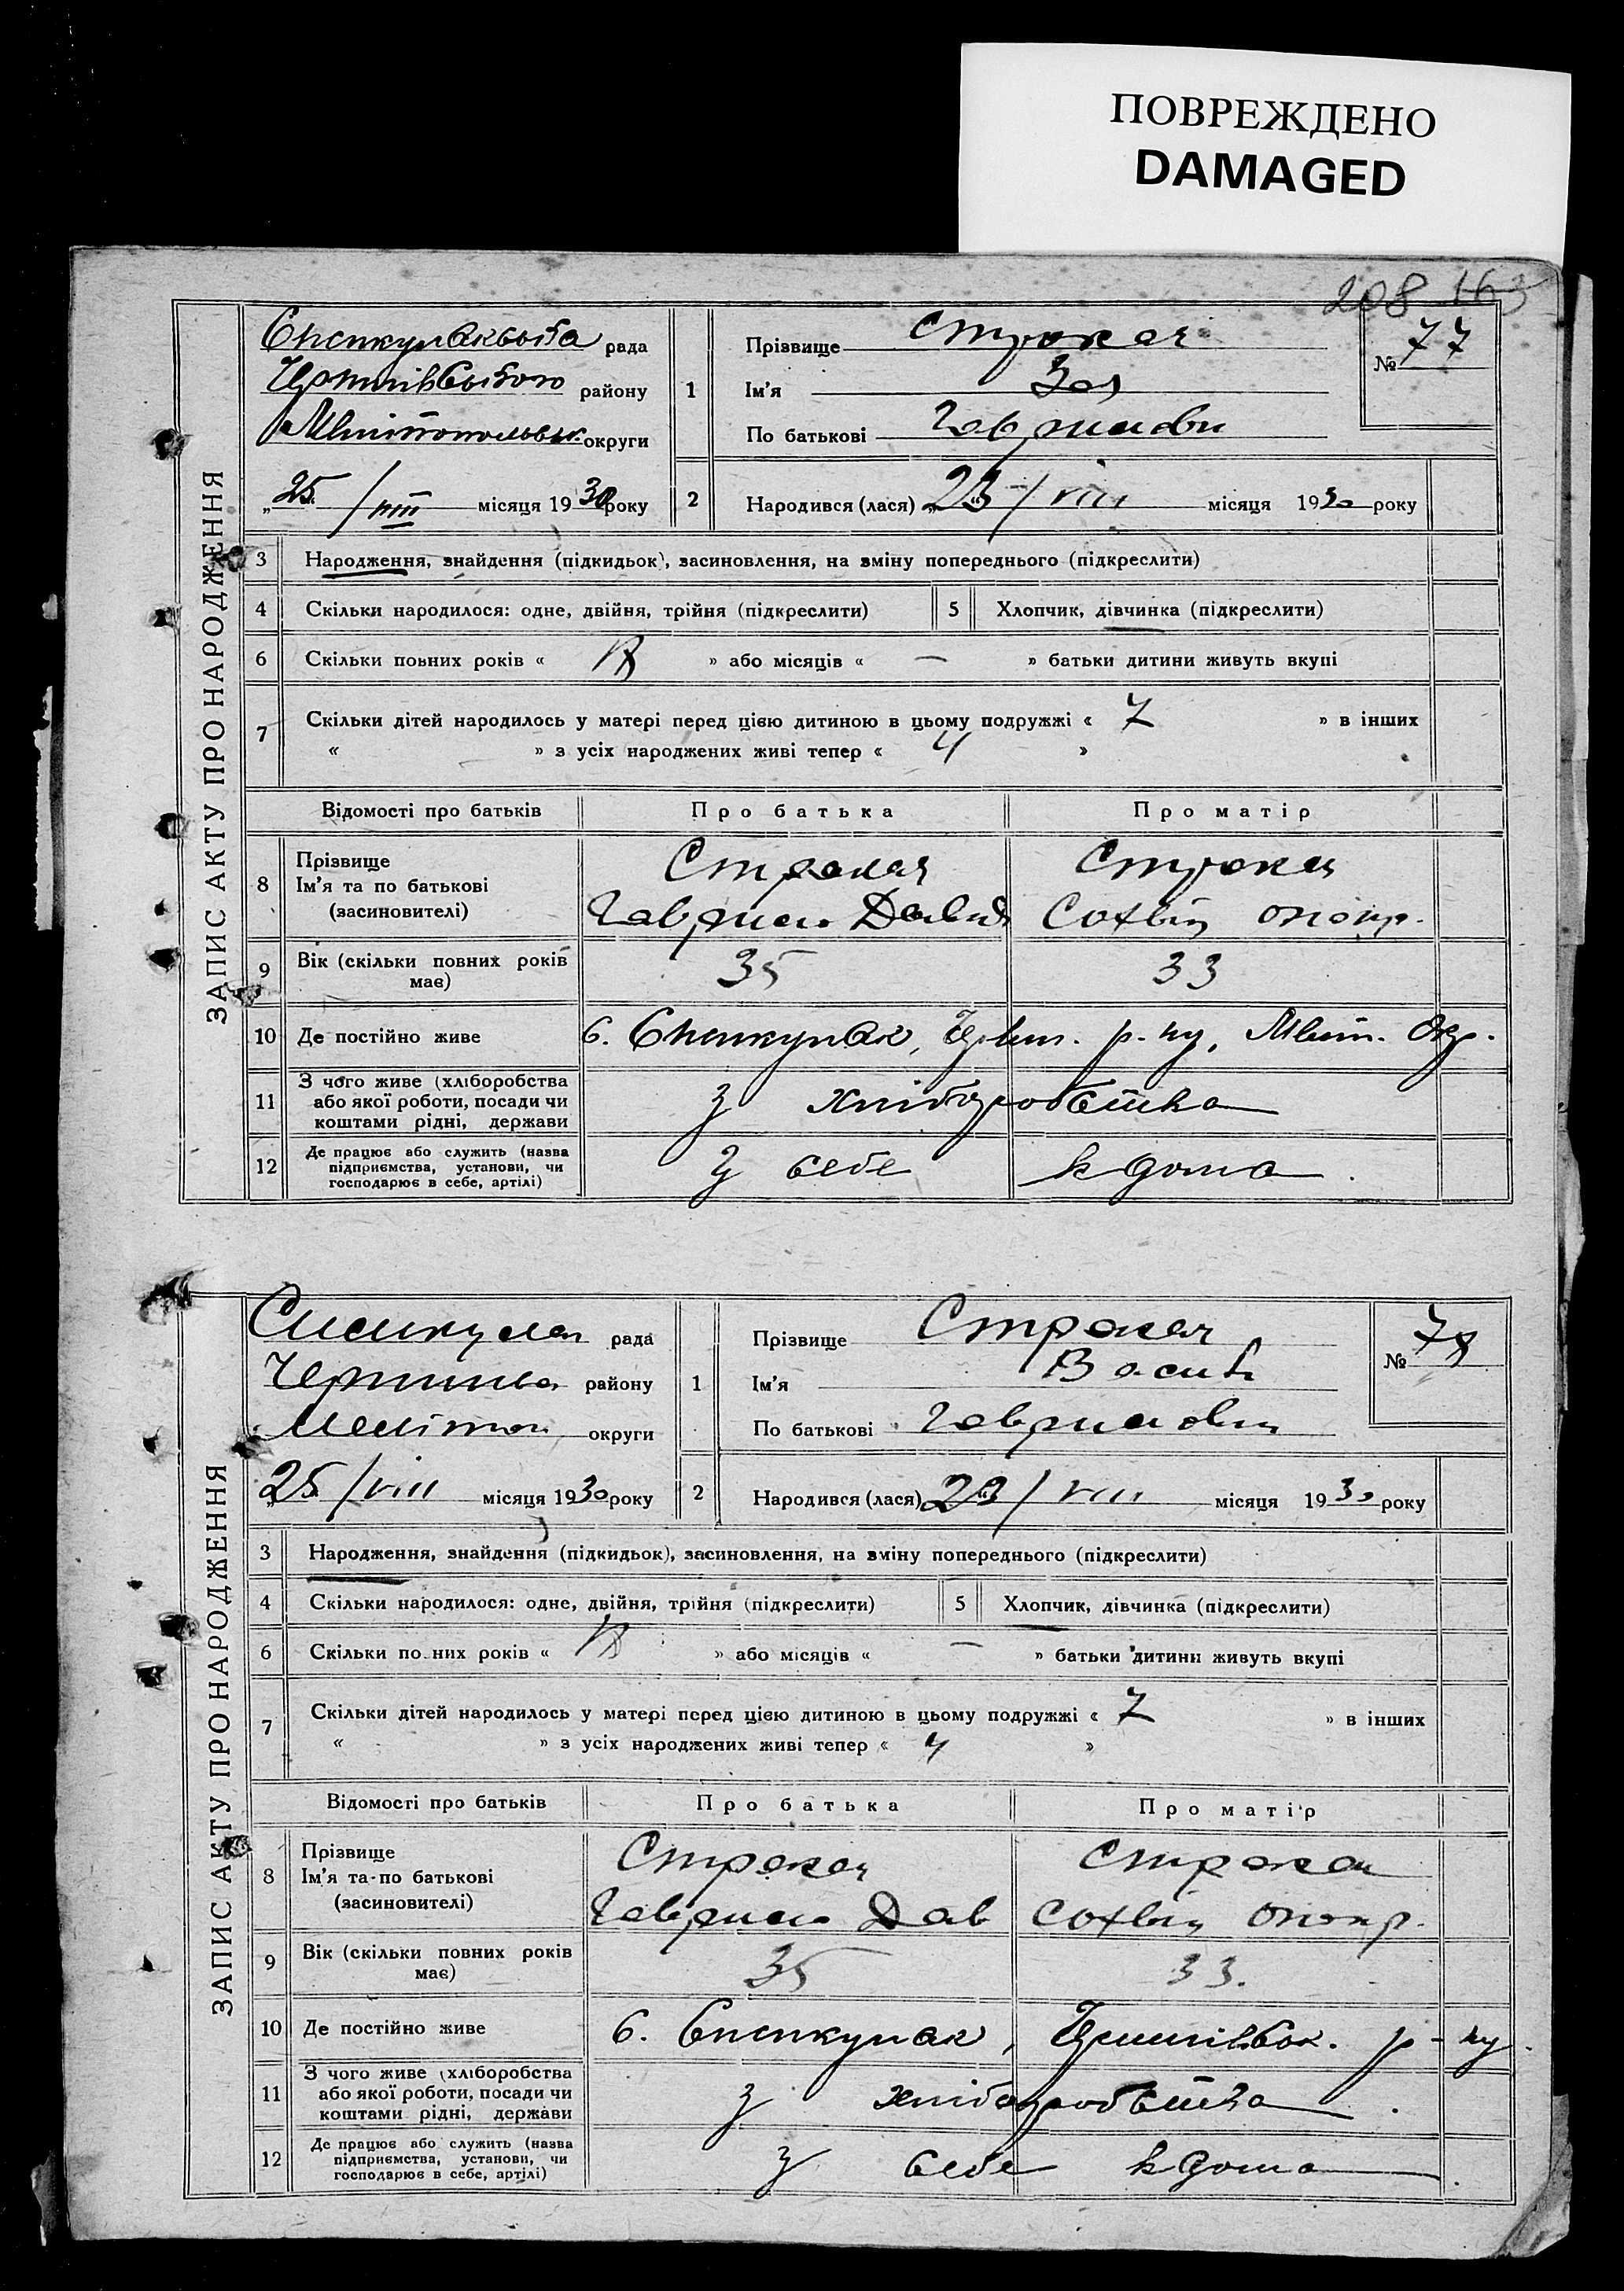 ПОВРЕЖДЕНО
DAMAGED
208 163
ЗАПИС АКТУ ПРО НАРОДЖЕННЯ
рада
району
округи
„25 / VIII місяця 1930 року
1
Прізвище Строкач
Ім'я Зоя
По батькові
№ 77
2
Народився (лася) „23 / VIII місяця 1930 року
3 Народження, знайдення (підкидьок), засиновлення, на зміну попереднього (підкреслити)
4 Скільки народилося: одне, двійня, трійня (підкреслити)
5 Хлопчик, дівчинка (підкреслити)
6 Скільки повних років « » або місяців « — » батьки дитини живуть вкупі
7 Скільки дітей народилось у матері перед цією дитиною в цьому подружжі « 7 » в інших
« » з усіх народжених живі тепер « 4 »
Відомості про батьків
Про батька
Про матір
8 Прізвище
Ім'я та по батькові
(засиновителі)
Строкач
Строкач
9 Вік (скільки повних років
має)
35
33
10 Де постійно живе
11 З чого живе (хліборобства
або якої роботи, посади чи
коштами рідні, держави
з хліборобства
12 Де працює або служить (назва
підприємства, установи, чи
господарює в себе, артілі)
у себе
дома
ЗАПИС АКТУ ПРО НАРОДЖЕННЯ
рада
району
округи
„25 / VIII місяця 1930 року
1
Прізвище Строкач
Ім'я
По батькові
№ 78
2
Народився (лася) „23 / VIII місяця 1930 року
3 Народження, знайдення (підкидьок), засиновлення, на зміну попереднього (підкреслити)
4 Скільки народилося: одне, двійня, трійня (підкреслити)
5 Хлопчик, дівчинка (підкреслити)
6 Скільки повних років « » або місяців « — » батьки дитини живуть вкупі
7 Скільки дітей народилось у матері перед цією дитиною в цьому подружжі « 7 » в інших
« » з усіх народжених живі тепер « 4 »
Відомості про батьків
Про батька
Про матір
8 Прізвище
Ім'я та по батькові
(засиновителі)
Строкач
Строкач
9 Вік (скільки повних років
має)
35
33.
10 Де постійно живе
11 З чого живе (хліборобства
або якої роботи, посади чи
коштами рідні, держави
з хліборобства
12 Де працює або служить (назва
підприємства, установи, чи
господарює в себе, артілі)
у себе
дома